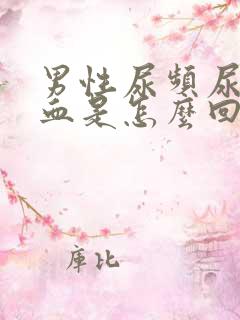 男性尿頻尿
血是怎麼回
庫比